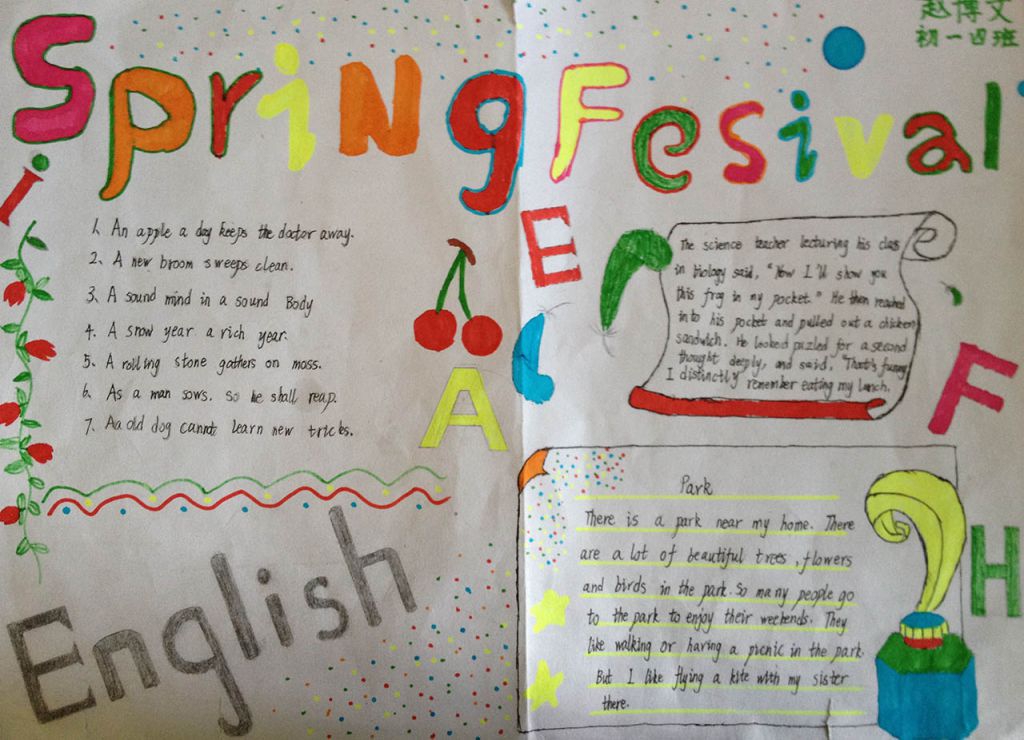 Spring Fesival
赵博文
初一四班
i
1. An apple a day keeps the doctor away.
2. A new broom sweeps clean.
3. A sound mind in a sound Body
4. A snow year a rich year.
5. A rolling stone gathers on moss.
6. As a man sows. So he shall reap.
7. Aa old dog cannot learn new tricks.
E
A
The science teacher lecturing his class
in biology said, "Now I'll show you
this frog in my pocket." He then reached
into his pocket and pulled out a chicken
sandwich. He looked puzzled for a second
thought deeply, and said, "That's funny
I distinctly remember eating my lunch.
F
English
Park
There is a park near my home. There
are a lot of beautiful trees, flowers
and birds in the park. So many people go
to the park to enjoy their weekends. They
like walking or having a picnic in the park.
But I like flying a kite with my sister
there.
H